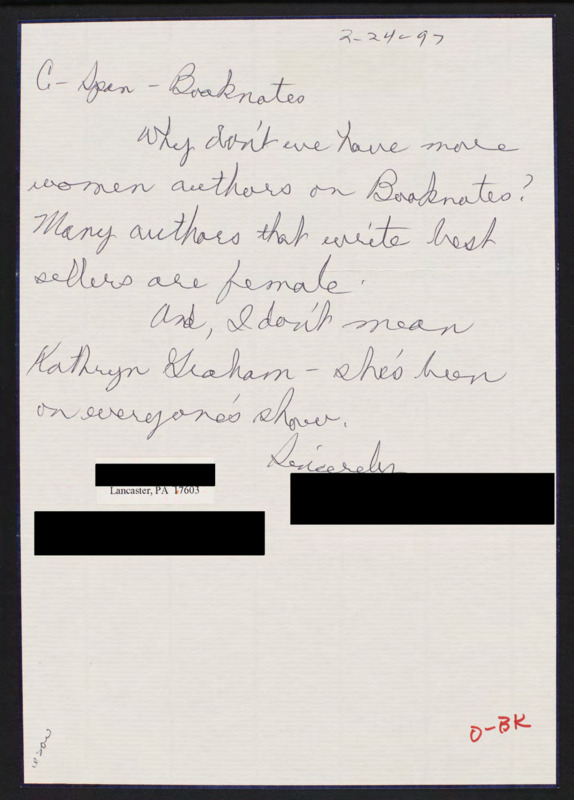 2-24-97
C-Span - Booknotes
Why don't we have more
women authors on Booknotes?
Many authors that write best
sellers are female.
And, I don't mean
Kathryn Graham - she's been
on everyone's show.
Sincerely
Lancaster, PA 17603
O-BK